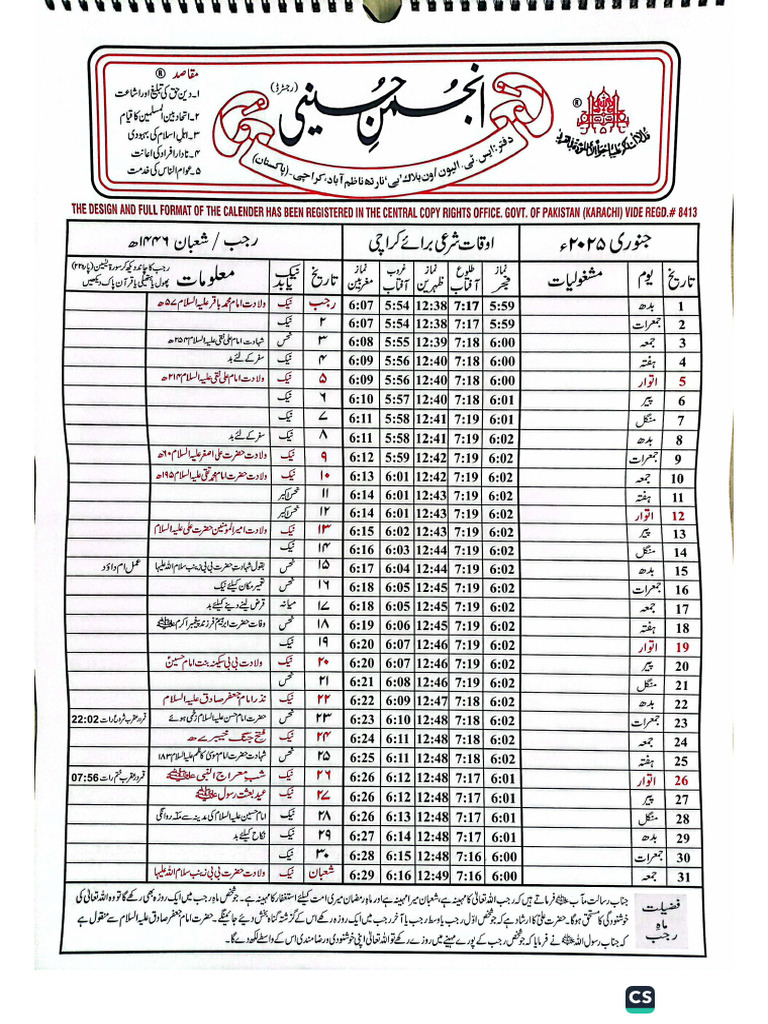 مقاصد ®
۱۔ دین حق کی تبلیغ اور اشاعت
۲۔ اتحاد بین المسلمین کا قیام
۳۔ اہل اسلام کی بہبودی
۴۔ نادار افراد کی اعانت
۵۔ عوام الناس کی خدمت
انجمنِ حسینی (رجسٹرڈ)
دفتر: ایس۔ٹی۔الیون اون بلاک 'بی' نارتھ ناظم آباد، کراچی۔ (پاکستان)
®
THE DESIGN AND FULL FORMAT OF THE CALENDER HAS BEEN REGISTERED IN THE CENTRAL COPY RIGHTS OFFICE. GOVT. OF PAKISTAN (KARACHI) VIDE REGD.# 8413
جنوری ۲۰۲۵ء اوقات شرعی برائے کراچی رجب / شعبان ۱۴۴۶ھ
تاریخ یوم مشغولیات نماز فجر طلوع آفتاب نماز ظہرین غروب آفتاب نماز مغربین تاریخ نیک یا بد معلومات رجب کا چاند دیکھ کر سورۃ یٰسین (پارہ ۲۲) پھول یا ہتھیلی یا قرآن پاک دیکھیں
1 بدھ 5:59 7:17 12:38 5:54 6:07 رجب نیک ولادت امام محمد باقر علیہ السلام ۵۷ھ
2 جمعرات 5:59 7:17 12:38 5:54 6:07 ۲ نیک
3 جمعہ 6:00 7:18 12:39 5:55 6:08 ۳ نحس شہادت امام علی نقی علیہ السلام ۲۵۴ھ
4 ہفتہ 6:00 7:18 12:40 5:56 6:09 ۴ نیک سفر کے لئے بد
5 اتوار 6:00 7:18 12:40 5:56 6:09 ۵ نیک ولادت امام علی نقی علیہ السلام ۲۱۴ھ
6 پیر 6:01 7:18 12:40 5:57 6:10 ۶ نیک
7 منگل 6:01 7:19 12:41 5:58 6:11 ۷ نیک
8 بدھ 6:02 7:19 12:41 5:58 6:11 ۸ نیک سفر کے لئے بد
9 جمعرات 6:02 7:19 12:42 5:59 6:12 ۹ نیک ولادت حضرت علی اصغر علیہ السلام ۶۰ھ
10 جمعہ 6:02 7:19 12:42 6:01 6:13 ۱۰ نیک ولادت حضرت امام محمد تقی علیہ السلام ۱۹۵ھ
11 ہفتہ 6:02 7:19 12:43 6:01 6:14 ۱۱ نحس اکبر
12 اتوار 6:02 7:19 12:43 6:01 6:14 ۱۲ نحس اکبر
13 پیر 6:02 7:19 12:43 6:02 6:15 ۱۳ نیک ولادت امیر المومنین حضرت علی علیہ السلام
14 منگل 6:02 7:19 12:44 6:03 6:16 ۱۴ نیک
15 بدھ 6:02 7:19 12:44 6:04 6:17 ۱۵ نحس بقول شہادت حضرت بی بی زینب سلام اللہ علیہا عمل ام داؤد
16 جمعرات 6:02 7:19 12:45 6:05 6:18 ۱۶ نحس تعمیر مکان کیلئے نیک
17 جمعہ 6:02 7:19 12:45 6:05 6:18 ۱۷ میانہ قرض لینے دینے کیلئے بد
18 ہفتہ 6:02 7:19 12:45 6:06 6:19 ۱۸ نحس وفات حضرت ابراہیم فرزند پیغمبر اکرم ﷺ
19 اتوار 6:02 7:19 12:46 6:07 6:20 ۱۹ نیک
20 پیر 6:02 7:19 12:46 6:07 6:20 ۲۰ نیک ولادت بی بی سکینہ بنت امام حسین
21 منگل 6:02 7:19 12:46 6:08 6:21 ۲۱ نحس
22 بدھ 6:02 7:18 12:47 6:09 6:22 ۲۲ نیک نذر امام جعفر صادق علیہ السلام
23 جمعرات 6:02 7:18 12:48 6:10 6:23 ۲۳ نحس حضرت امام حسن علیہ السلام زخمی ہوئے قمر در عقرب شروع رات 22:02
24 جمعہ 6:02 7:18 12:48 6:11 6:24 ۲۴ نیک فتح جنگ خیبر ۷ھ
25 ہفتہ 6:02 7:18 12:48 6:11 6:25 ۲۵ نحس شہادت حضرت امام موسیٰ کاظم علیہ السلام ۱۸۳ھ
26 اتوار 6:01 7:17 12:48 6:12 6:26 ۲۶ نیک شب معراج النبی ﷺ قمر در عقرب ختم رات 07:56
27 پیر 6:01 7:17 12:48 6:12 6:26 ۲۷ نیک عید بعثت رسول ﷺ
28 منگل 6:01 7:17 12:48 6:13 6:26 ۲۸ نیک امام حسین علیہ السلام کی مدینہ سے مکہ روانگی
29 بدھ 6:01 7:17 12:48 6:14 6:27 ۲۹ نیک نکاح کیلئے بد
30 جمعرات 6:00 7:16 12:48 6:15 6:28 ۳۰ نیک
31 جمعہ 6:00 7:16 12:49 6:16 6:29 شعبان نیک ولادت حضرت بی بی زینب سلام اللہ علیہا
فضیلت ماہ رجب
جناب رسالت مآب ﷺ فرماتے ہیں کہ رجب اللہ تعالیٰ کا مہینہ ہے، شعبان میرا مہینہ ہے اور ماہ رمضان میری امت کیلئے استغفار کا مہینہ ہے۔ جو شخص ماہ رجب میں ایک روزہ بھی رکھے گا تو وہ اللہ تعالیٰ کی
خوشنودگی کا مستحق ہوگا۔ حضرت علیؑ کا ارشاد ہے کہ جو شخص اوّل رجب یا وسط رجب یا آخر رجب میں ایک روزہ رکھے اس کے گزشتہ گناہ بخش دیئے جائینگے۔ حضرت امام جعفر صادق علیہ السلام سے منقول ہے
کہ جناب رسول اللہ ﷺ نے فرمایا کہ جو شخص رجب کے پورے مہینے میں روزے رکھے تو اللہ تعالیٰ اپنی خوشنودی و رضامندی اس کے واسطے لکھ دے گا۔
CS